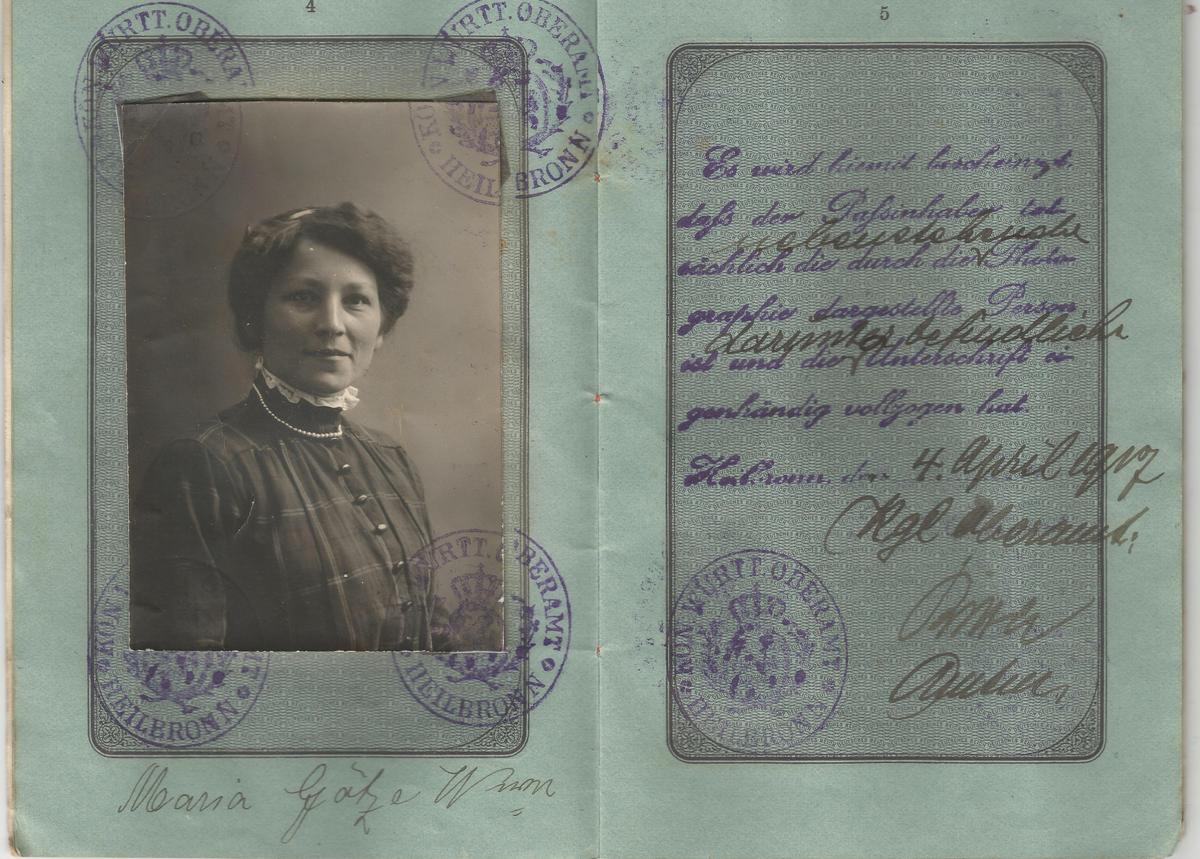 4
KÖN. WÜRTT. OBERAMT
HEILBRONN
KÖN. WÜRTT. OBERAMT
HEILBRONN
KÖN. WÜRTT. OBERAMT
HEILBRONN
KÖN. WÜRTT. OBERAMT
HEILBRONN
Maria Götze
5
Es wird hiemit bescheinigt,
daß der Paßinhaber tat-
sächlich die durch die Photo-
graphie dargestellte Person
darunter befindliche
ist und die Unterschrift ei-
genhändig vollzogen hat.
Heilbronn, den 4. April 1917
Kgl Oberamt:
KÖN. WÜRTT. OBERAMT
HEILBRONN